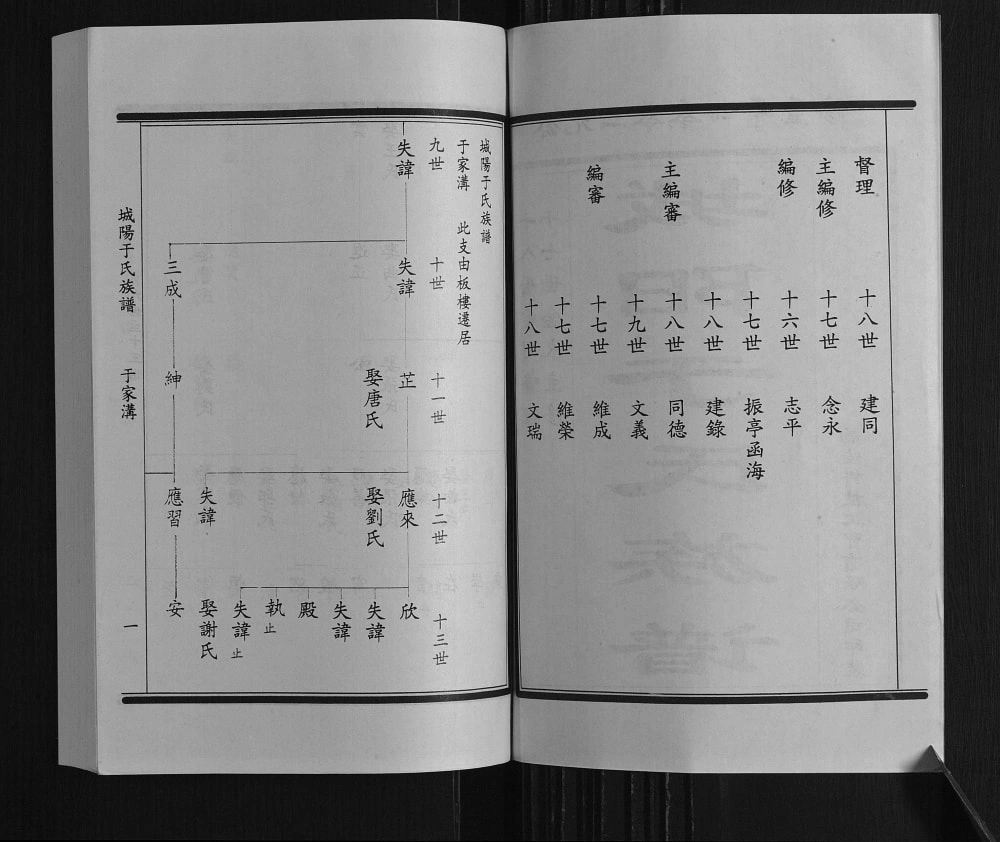 督理 十八世 建同
主編修 十七世 念永
編修 十六世 志平
十七世 振亭函海
十八世 建錄
主編審 十八世 同德
十九世 文義
編審 十七世 維成
十七世 維榮
十八世 文瑞
城陽于氏族譜
于家溝 此支由板樓遷居
九世 十世 十一世 十二世 十三世
失諱 失諱 芷 應來 欣
娶唐氏 娶劉氏 失諱
失諱
殿
執止
失諱 失諱止
娶謝氏
三成 紳 應習 安
城陽于氏族譜 于家溝 一